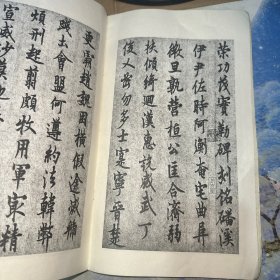 策功茂實勒碑刻銘磻溪
伊尹佐時阿衡奄宅曲阜
微旦孰營桓公匡合濟弱
扶傾綺迴漢惠說感武丁
俊乂密勿多士寔寧晉楚
更霸趙魏困橫假途滅虢
踐土會盟何遵約法韓弊
煩刑起翦頗牧用軍最精
宣威沙漠